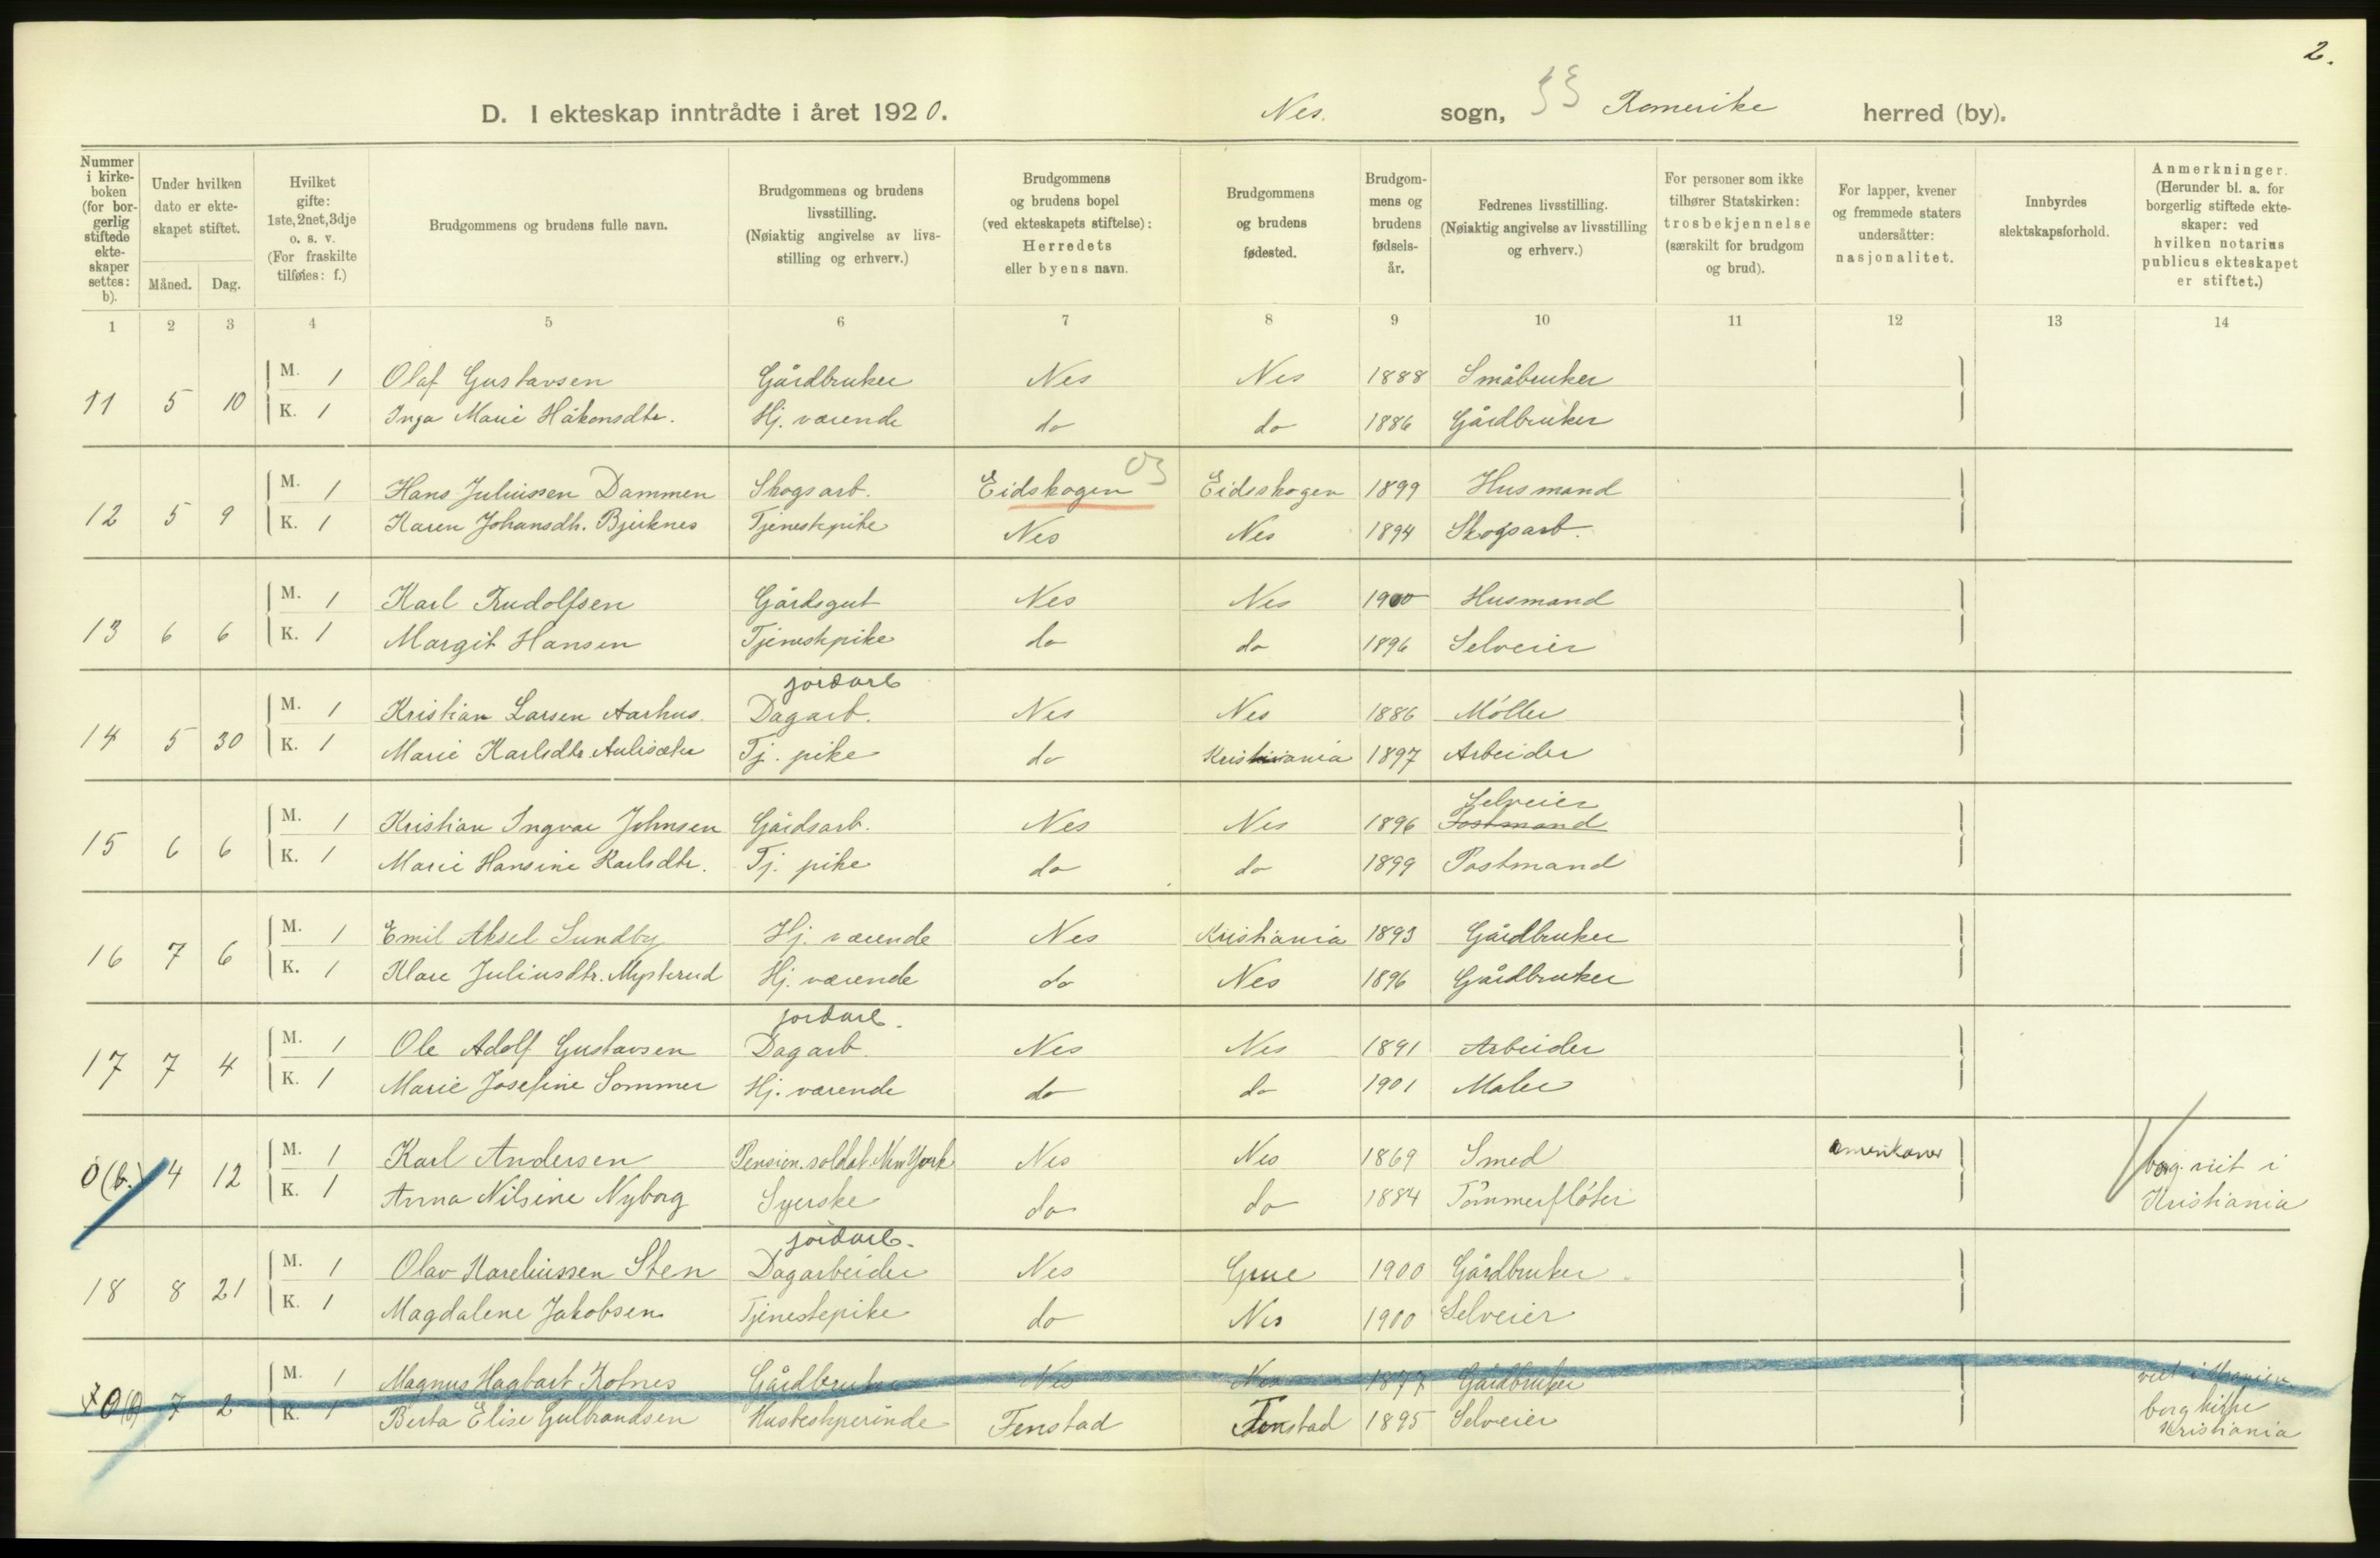 2.
D. I ekteskap inntrådte i året 1920. Nes. sogn, Romerike herred (by).
Nummer i kirke-boken (for bor-gerlig stiftede ekte-skaper settes: b).
Under hvilken dato er ekte-skapet stiftet.
Måned. Dag.
Hvilket gifte: 1ste, 2net, 3dje o. s. v. (For fraskilte tilføies: f.)
Brudgommens og brudens fulle navn.
Brudgommens og brudens livsstilling. (Nøiaktig angivelse av livs-stilling og erhverv.)
Brudgommens og brudens bopel (ved ekteskapets stiftelse): Herredets eller byens navn.
Brudgommens og brudens fødested.
Brudgom-mens og brudens fødsels-år.
Fedrenes livsstilling. (Nøiaktig angivelse av livsstilling og erhverv.)
For personer som ikke tilhører Statskirken: trosbekjennelse (særskilt for brudgom og brud).
For lapper, kvener og fremmede staters undersåtter: nasjonalitet.
Innbyrdes slektskapsforhold.
Anmerkninger. (Herunder bl. a. for borgerlig stiftede ekte-skaper: ved hvilken notarius publicus ekteskapet er stiftet.)
1 2 3 4 5 6 7 8 9 10 11 12 13 14
11 5 10 M. 1 Olaf Gustavsen Gårdbruker Nes Nes 1888 Småbruker
K. 1 Inga Marie Håkonsdtr. Hj. værende do do 1886 Gårdbruker
03
12 5 9 M. 1 Hans Juliussen Dammen Skogsarb. Eidskogen Eidskogen 1899 Husmand
K. 1 Karen Johansdtr. Bjerknes Tjenestepike Nes Nes 1894 Skogsarb.
13 6 6 M. 1 Karl Rudolfsen Gårdsgut Nes Nes 1900 Husmand
K. 1 Margit Hansen Tjenestepike do do 1896 Selveier
jordarb
14 5 30 M. 1 Kristian Larsen Aarhus. Dagarb. Nes Nes 1886 Møller
K. 1 Marie Karlsdtr. Aulisæter Tj. pike do Kristiania 1897 Arbeider
Selveier
15 6 6 M. 1 Kristian Ingvar Johnsen Gårdsarb. Nes Nes 1896 Postmand
K. 1 Marie Hansine Karlsdtr. Tj. pike do do 1899 Postmand
16 7 6 M. 1 Emil Aksel Sundby Hj. værende Nes Kristiania 1893 Gårdbruker
K. 1 Klare Juliusdtr. Mysterud Hj. værende do Nes 1896 Gårdbruker
jordarb.
17 7 4 M. 1 Ole Adolf Gustavsen Dagarb. Nes Nes 1891 Arbeider
K. 1 Marie Josefine Sommer Hj. værende do do 1901 Maler
0(b.) 4 12 M. 1 Karl Andersen Pension. soldat New York Nes Nes 1869 Smed amerikaner borg. viet i
K. 1 Anna Nilsine Nyborg Syerske do do 1884 Tømmerfløter Kristiania
jordarb.
18 8 21 M. 1 Olav Kareliussen Sten Dagarbeider Nes Grue 1900 Gårdbruker
K. 1 Magdalene Jakobsen Tjenestepike do Nes 1900 Selveier
0(b) 7 2 M. 1 Magnus Hagbart Kolnes Gårdbruker Nes Nes 1877 Gårdbruker viet i
K. 1 Berta Elise Gulbrandsen Husbestyrerinde Fenstad Fenstad 1895 Selveier
Kristiania